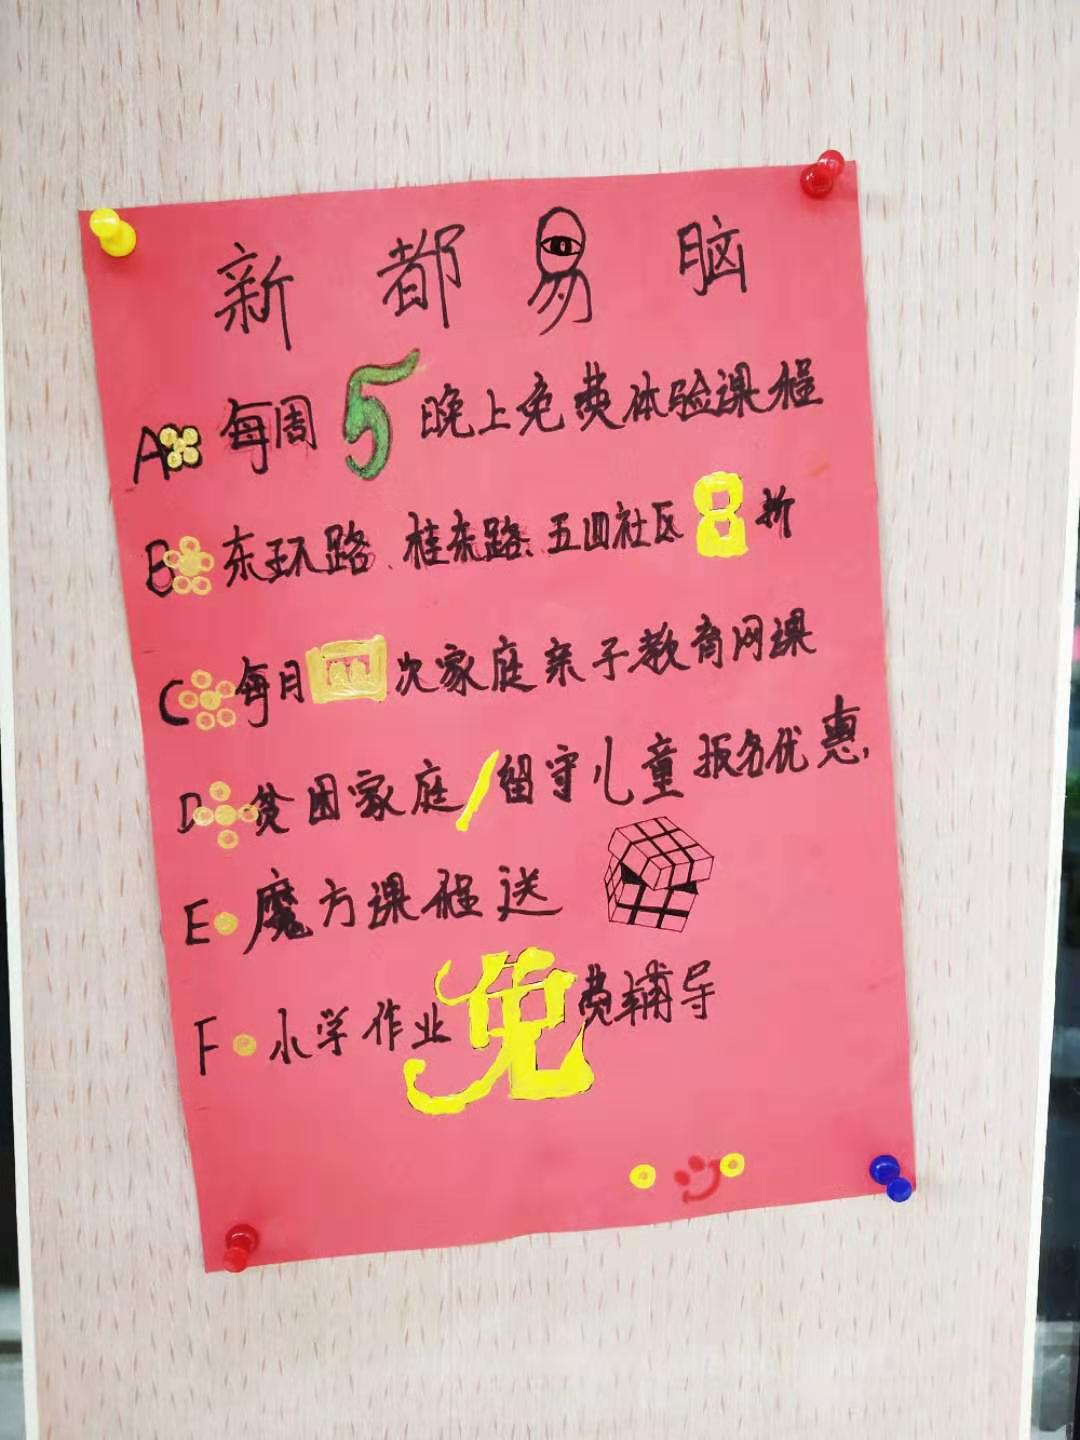 新都易脑
A 每周5晚上免费体验课程
B 东环路、桂东路、五四社区8折
C 每月四次家庭亲子教育网课
D 贫困家庭/留守儿童报名优惠,
E 魔方课程送
F 小学作业免费辅导